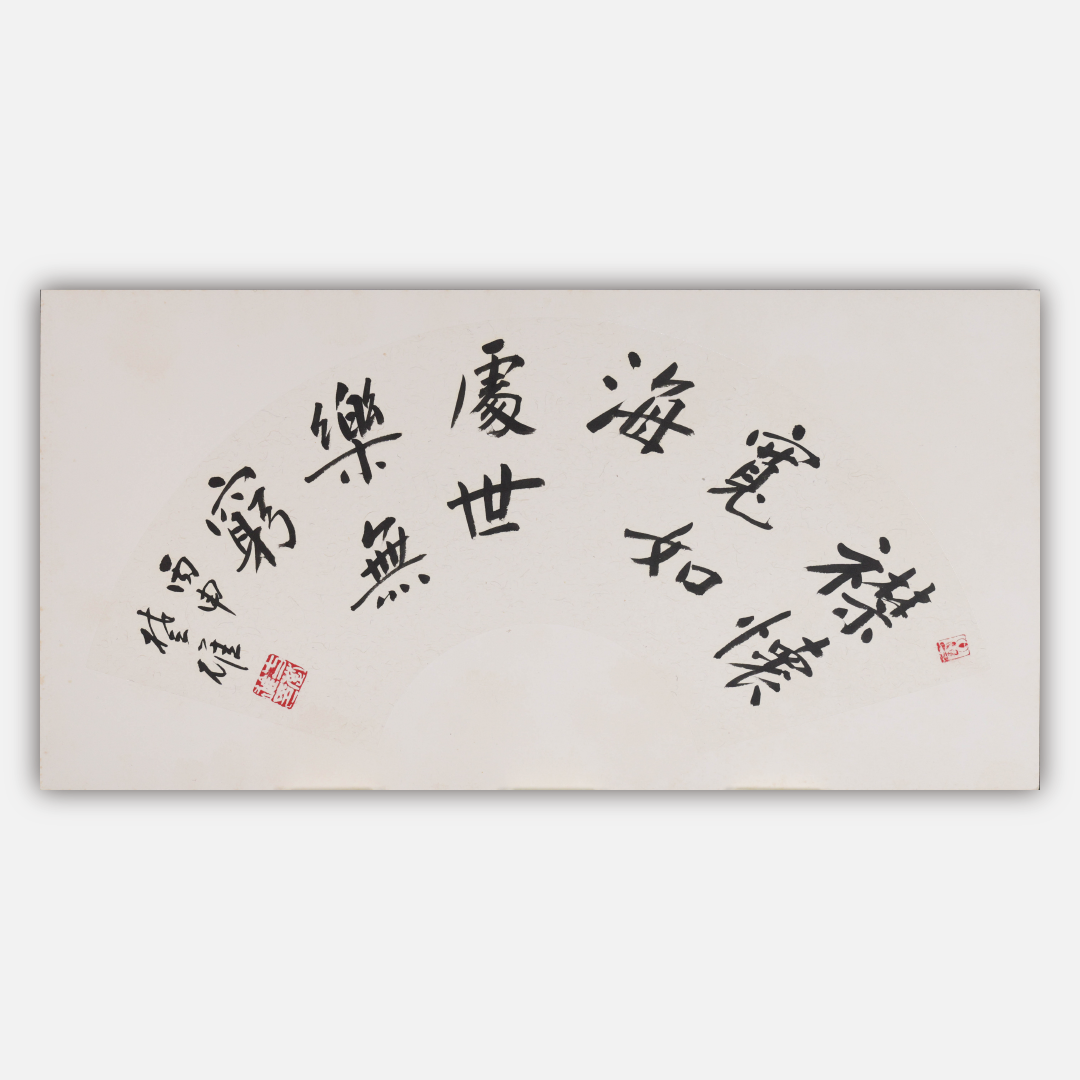 襟懷
寬如
海
處世
樂無
窮
丙申
桂雄